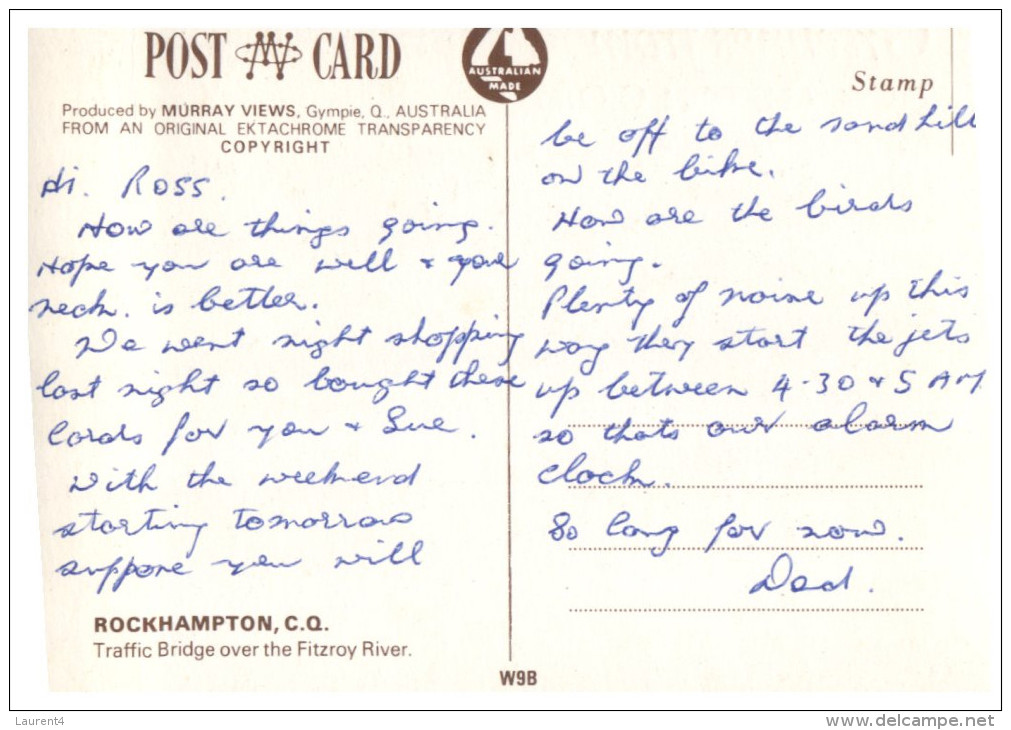 POST CARD
AUSTRALIAN
MADE
Stamp
Produced by MURRAY VIEWS, Gympie, Q., AUSTRALIA
FROM AN ORIGINAL EKTACHROME TRANSPARENCY
COPYRIGHT
Hi. Ross.
How are things going.
Hope you are well & your
neck. is better.
We went night shopping
last night so bought these
Cards for you & Sue.
With the weekend
starting tomorrow
suppose you will
be off to the sand hill
on the bike.
How are the birds
going.
Plenty of noise up this
way they start the jets
up between 4-30 & 5 AM
so thats our alarm
clock.
So long for now.
Dad.
ROCKHAMPTON, C.Q.
Traffic Bridge over the Fitzroy River.
W9B
Laurent4
www.delcampe.net